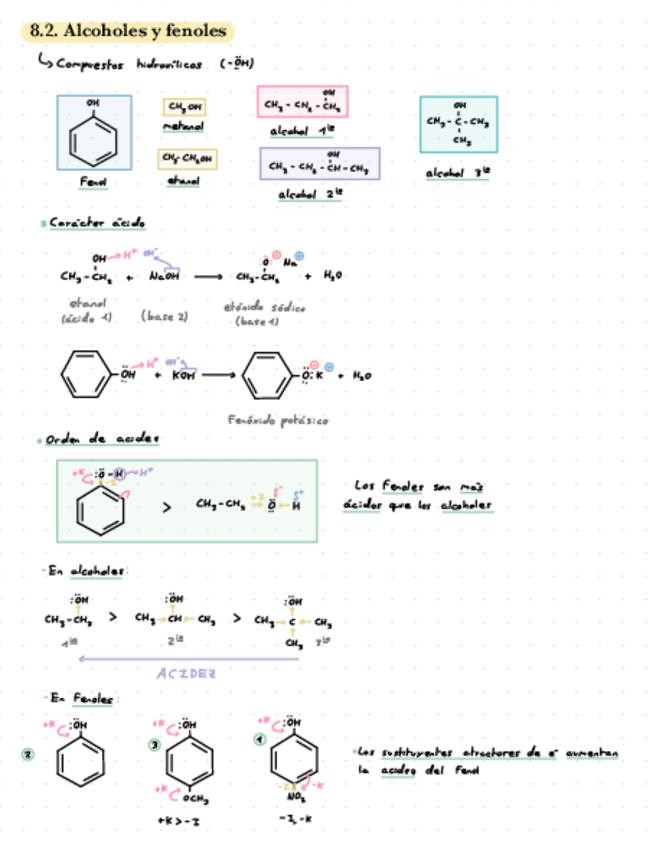 8.2. Alcoholes y fenoles
↳ Compuestos hidroxílicos (-ÖH)
OH
Fenol
CH₃OH
metanol
CH₃-CH₂OH
etanol
OH
CH₃ - CH₂ - CH₂
alcohol 1ᵃʳⁱᵒ
OH
CH₃ - CH₂ - CH - CH₃
alcohol 2ᵃʳⁱᵒ
OH
CH₃ - C - CH₃
CH₃
alcohol 3ᵃʳⁱᵒ
Carácter ácido
OH → H⁺ OH⁻ O⊖ Na⊕
CH₃ - CH₂ + NaOH → CH₃ - CH₂ + H₂O
etanol (base 2) etóxido sódico
(ácido 1) (base 1)
ÖH → H⁺ OH⁻
+ KOH → O: K + H₂O
Fenóxido potásico
Orden de acidez
+K :O - H → H⁺
-I
> CH₃ - CH₂ +I → O ← H
δ⁻ δ⁺
Los fenoles son más
ácidos que los alcoholes
- En alcoholes:
:ÖH :ÖH :ÖH
CH₃ - CH₂ > CH₃ → CH ← CH₃ > CH₃ → C ← CH₃
CH₃
ACIDEZ
- En fenoles:
+K :ÖH +K :ÖH +K :ÖH
2 3 1
+K OCH₃
-I -K NO₂
+K > -I
-I, -K
Los sustituyentes atractores de e⁻ aumentan
la acidez del fenol